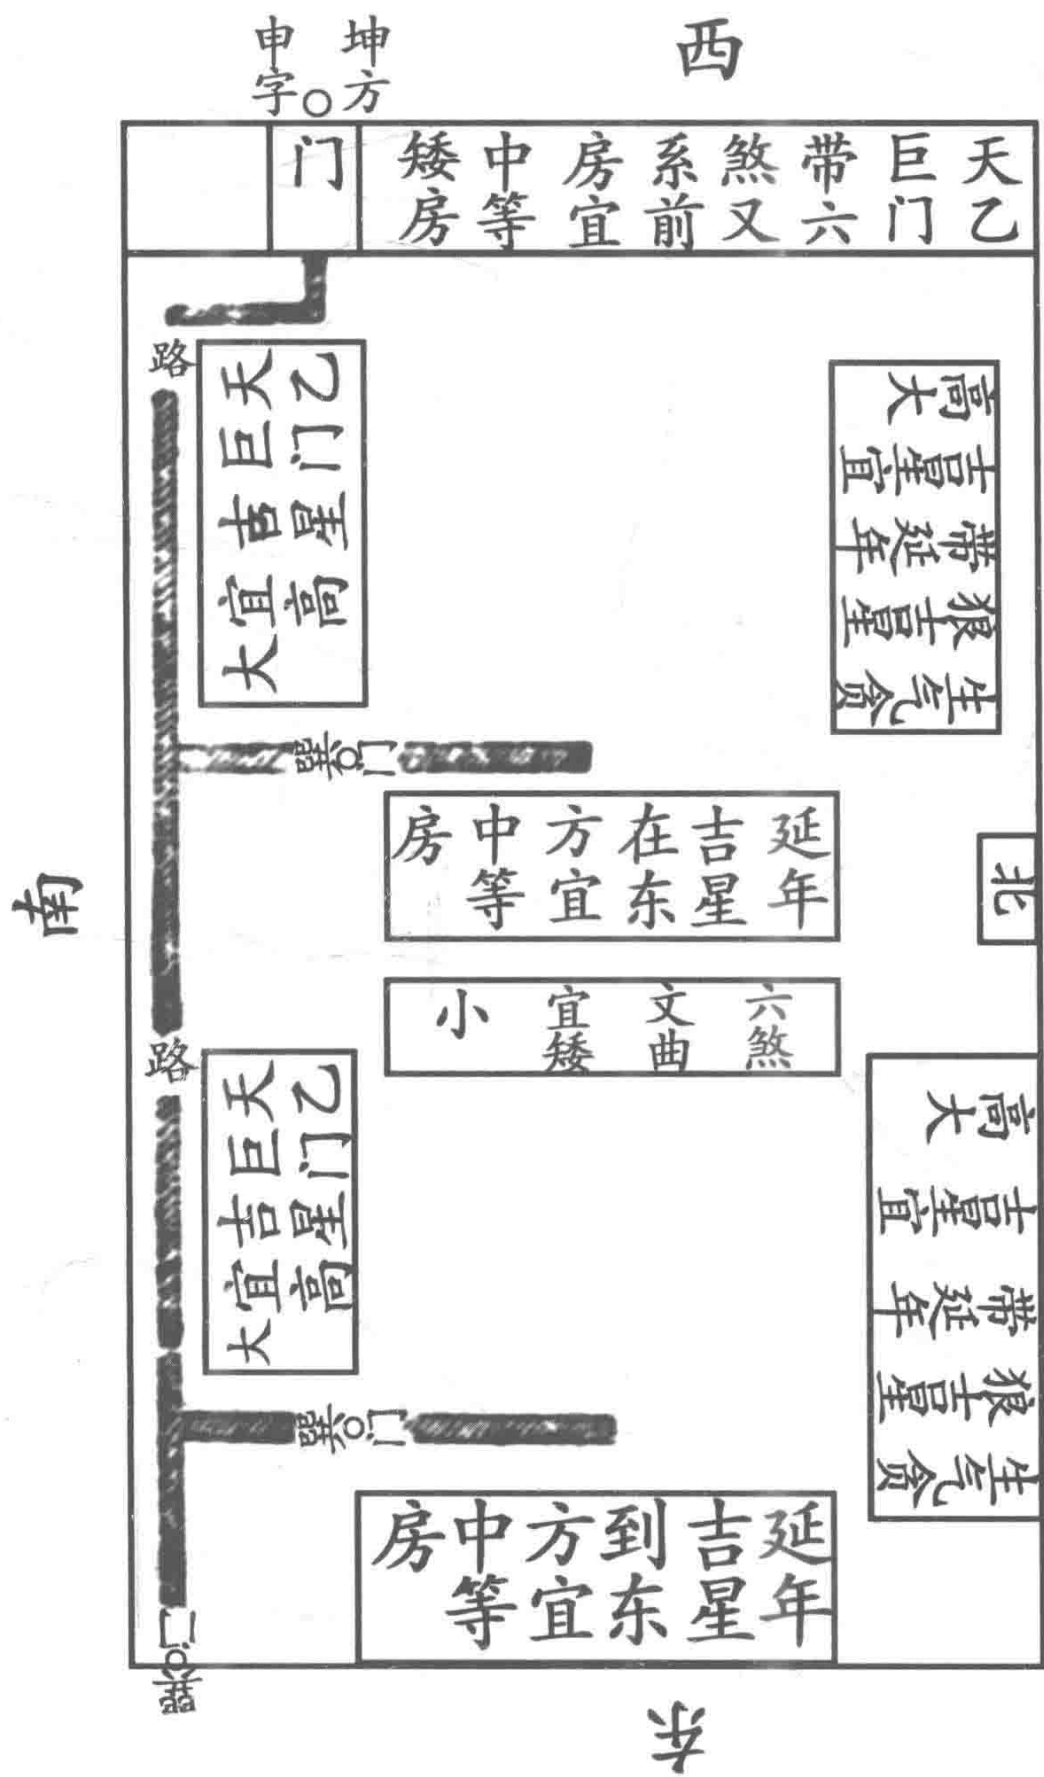 西
坤方
申字
门
天乙
巨门
带六
煞又
系前
房宜
中等
矮房
路
天乙
巨门
吉星
宜高
大
生气贪
狼吉星
带延年
吉星宜
高大
巽门
延年
吉星
在东
方宜
中等
房
北
南
六煞
文曲
宜矮
小
路
天乙
巨门
吉星
宜高
大
生气贪
狼吉星
带延年
吉星宜
高大
巽门
延年
吉星
到东
方宜
中等
房
巽门
东